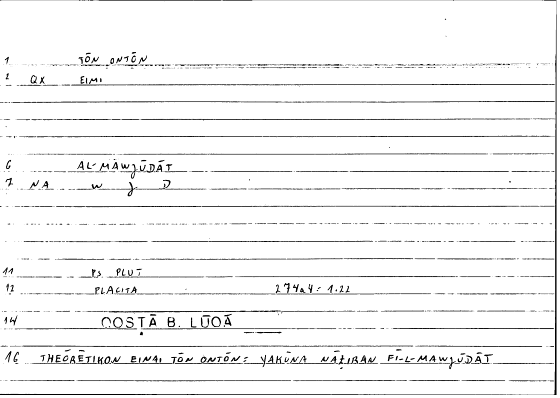 1 TŌN ONTŌN
2 QX EIMI
6 AL-MAWǧŪDĀT
7 NA W ǧ D
11 PS PLUT
12 PLACITA 274a4 = 1.22
14 QOSṬĀ B. LŪQĀ
16 THEŌRĒTIKON EINAI TŌN ONTŌN = YAKŪNA NĀẒIRAN FĪ-L-MAWǧŪDĀT